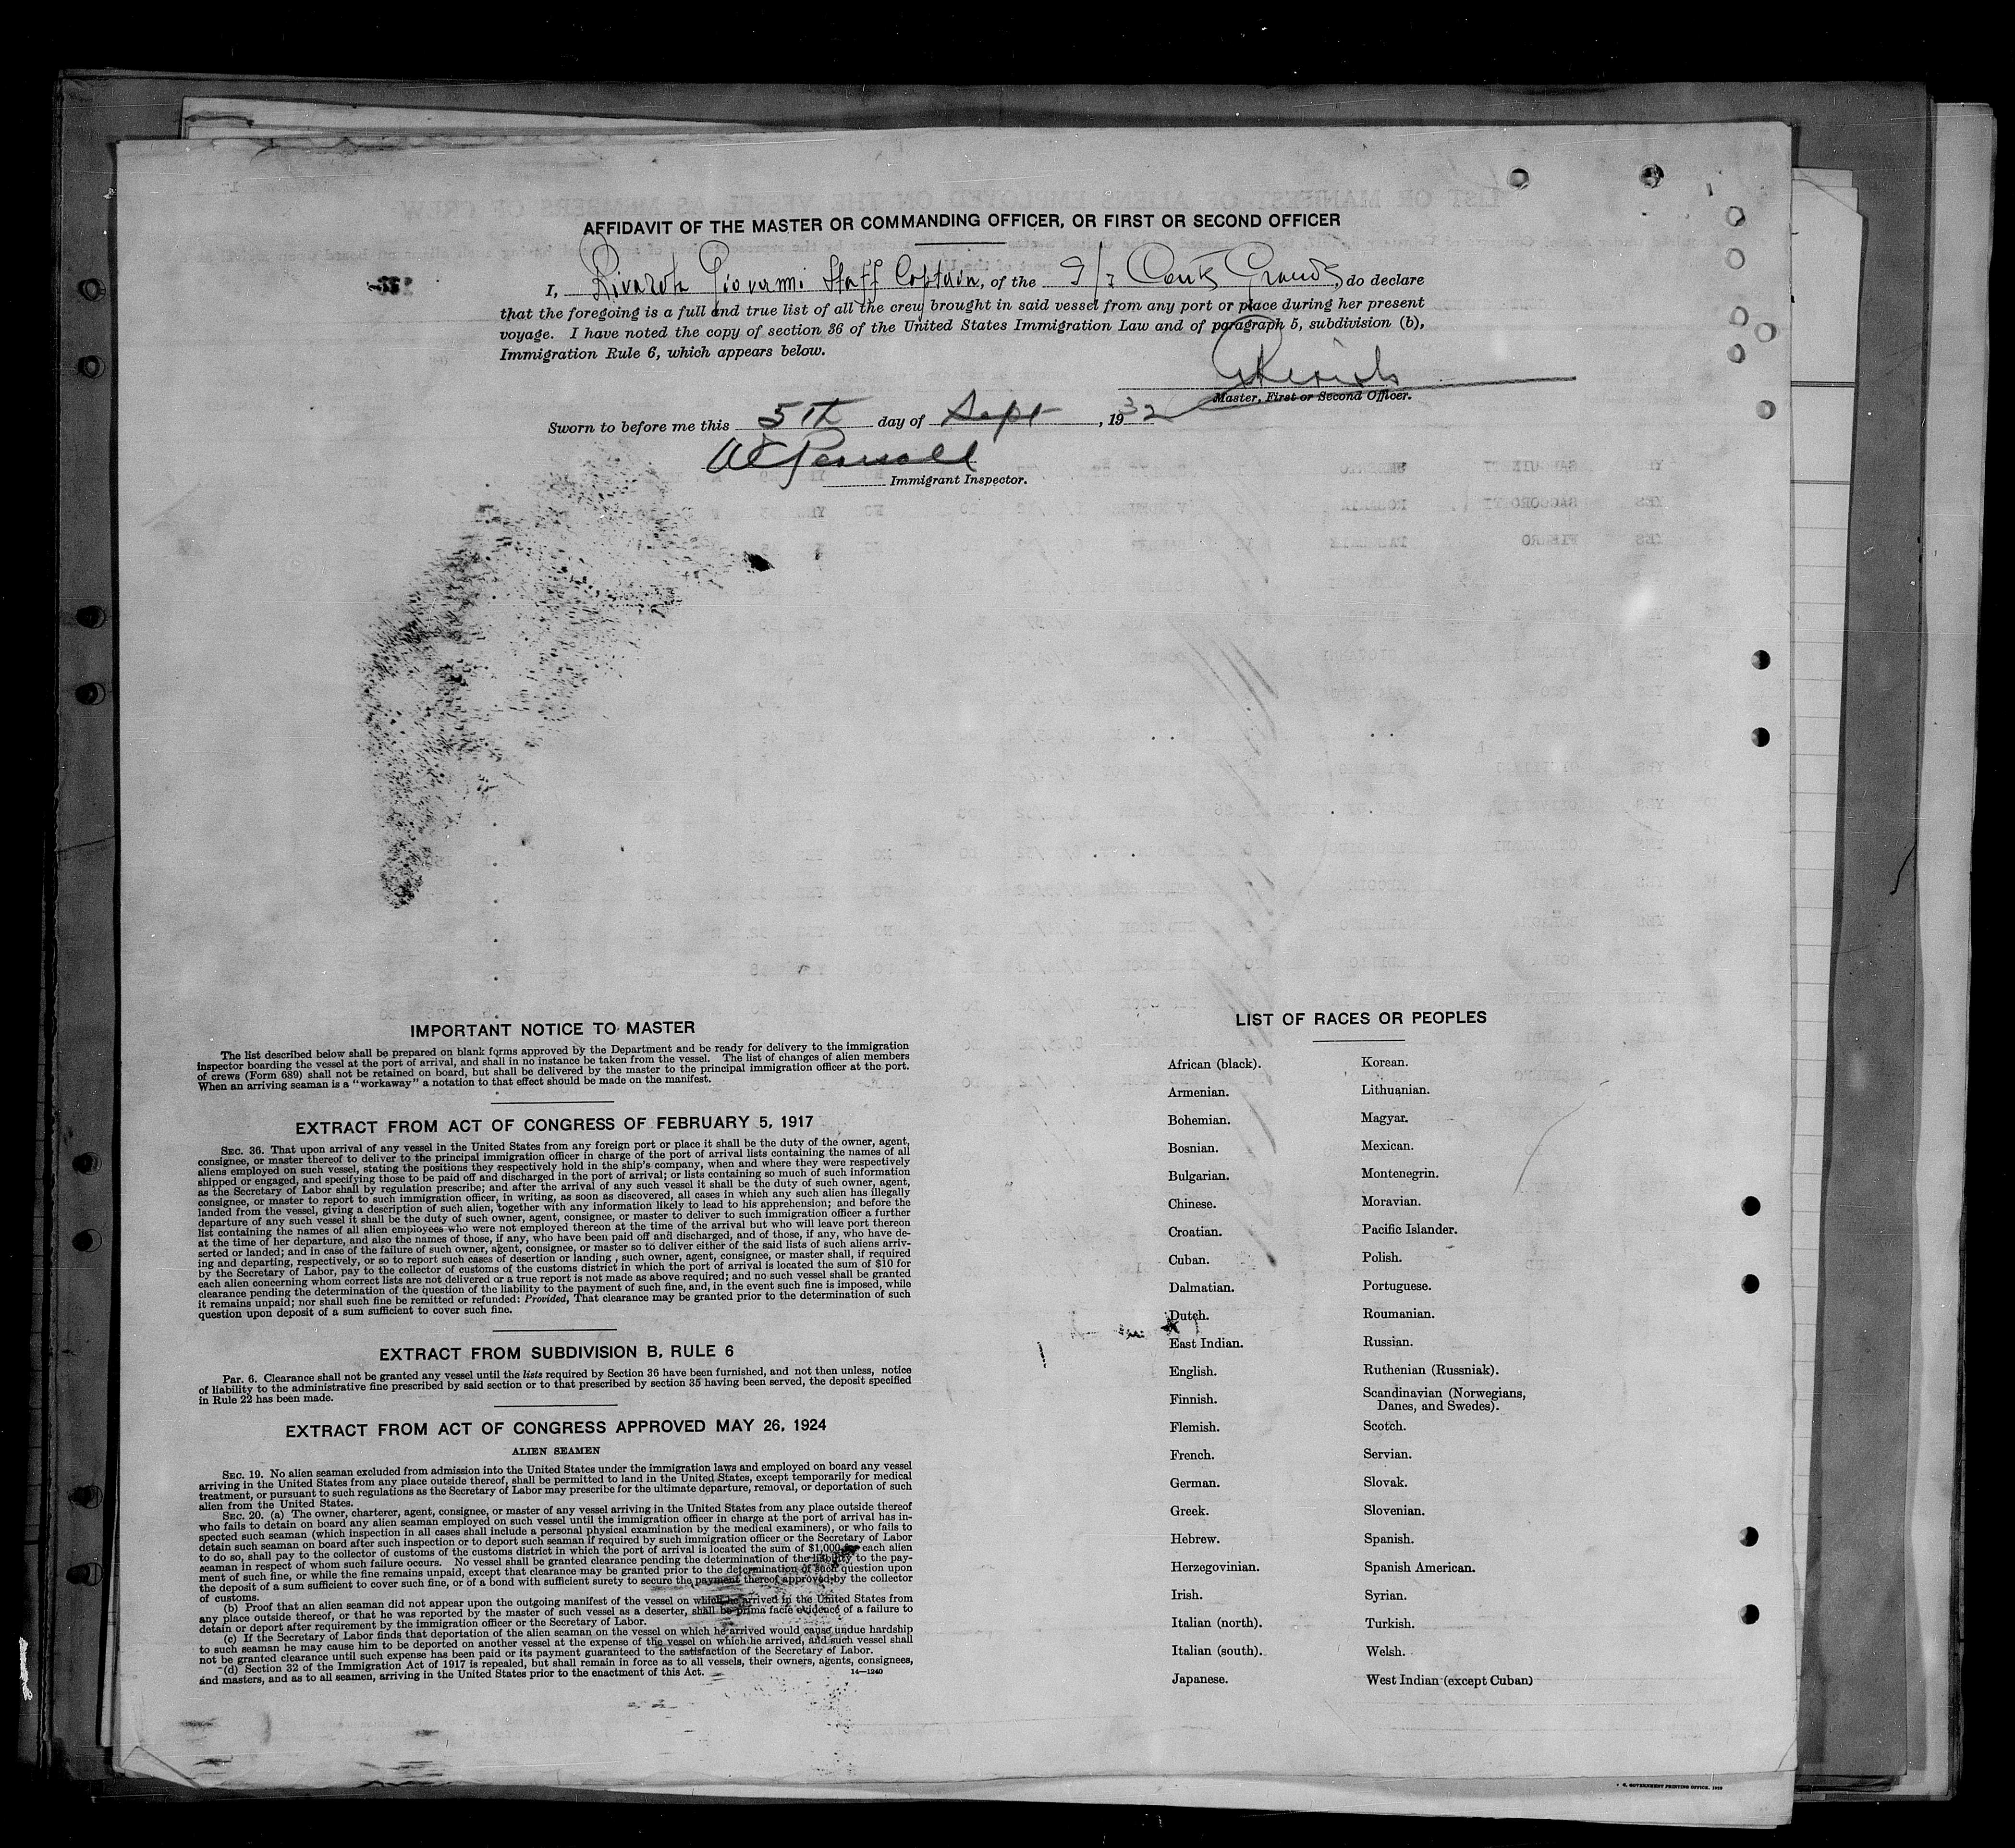 AFFIDAVIT OF THE MASTER OR COMMANDING OFFICER, OR FIRST OR SECOND OFFICER
I, Rivarola Giovanni Staff Captain, of the S/S Conte Grande, do declare
that the foregoing is a full and true list of all the crew brought in said vessel from any port or place during her present
voyage. I have noted the copy of section 36 of the United States Immigration Law and of paragraph 5, subdivision (b),
Immigration Rule 6, which appears below.
Master, First or Second Officer.
Sworn to before me this 5th day of Sept, 1932
Immigrant Inspector.
IMPORTANT NOTICE TO MASTER
The list described below shall be prepared on blank forms approved by the Department and be ready for delivery to the immigration
inspector boarding the vessel at the port of arrival, and shall in no instance be taken from the vessel. The list of changes of alien members
of crews (Form 689) shall not be retained on board, but shall be delivered by the master to the principal immigration officer at the port.
When an arriving seaman is a "workaway" a notation to that effect should be made on the manifest.
EXTRACT FROM ACT OF CONGRESS OF FEBRUARY 5, 1917
SEC. 36. That upon arrival of any vessel in the United States from any foreign port or place it shall be the duty of the owner, agent,
consignee, or master thereof to deliver to the principal immigration officer in charge of the port of arrival lists containing the names of all
aliens employed on such vessel, stating the positions they respectively hold in the ship's company, when and where they were respectively
shipped or engaged, and specifying those to be paid off and discharged in the port of arrival; or lists containing so much of such information
as the Secretary of Labor shall by regulation prescribe; and after the arrival of any such vessel it shall be the duty of such owner, agent,
consignee, or master to report to such immigration officer, in writing, as soon as discovered, all cases in which any such alien has illegally
landed from the vessel, giving a description of such alien, together with any information likely to lead to his apprehension; and before the
departure of any such vessel it shall be the duty of such owner, agent, consignee, or master to deliver to such immigration officer a further
list containing the names of all alien employees who were not employed thereon at the time of the arrival but who will leave port thereon
at the time of her departure, and also the names of those, if any, who have been paid off and discharged, and of those, if any, who have de-
serted or landed; and in case of the failure of such owner, agent, consignee, or master so to deliver either of the said lists of such aliens arriv-
ing and departing, respectively, or so to report such cases of desertion or landing , such owner, agent, consignee, or master shall, if required
by the Secretary of Labor, pay to the collector of customs of the customs district in which the port of arrival is located the sum of $10 for
each alien concerning whom correct lists are not delivered or a true report is not made as above required; and no such vessel shall be granted
clearance pending the determination of the question of the liability to the payment of such fine, and, in the event such fine is imposed, while
it remains unpaid; nor shall such fine be remitted or refunded: Provided, That clearance may be granted prior to the determination of such
question upon deposit of a sum sufficient to cover such fine.
EXTRACT FROM SUBDIVISION B, RULE 6
Par. 6. Clearance shall not be granted any vessel until the lists required by Section 36 have been furnished, and not then unless, notice
of liability to the administrative fine prescribed by said section or to that prescribed by section 35 having been served, the deposit specified
in Rule 22 has been made.
EXTRACT FROM ACT OF CONGRESS APPROVED MAY 26, 1924
ALIEN SEAMEN
SEC. 19. No alien seaman excluded from admission into the United States under the immigration laws and employed on board any vessel
arriving in the United States from any place outside thereof, shall be permitted to land in the United States, except temporarily for medical
treatment, or pursuant to such regulations as the Secretary of Labor may prescribe for the ultimate departure, removal, or deportation of such
alien from the United States.
SEC. 20. (a) The owner, charterer, agent, consignee, or master of any vessel arriving in the United States from any place outside thereof
who fails to detain on board any alien seaman employed on such vessel until the immigration officer in charge at the port of arrival has in-
spected such seaman (which inspection in all cases shall include a personal physical examination by the medical examiners), or who fails to
detain such seaman on board after such inspection or to deport such seaman if required by such immigration officer or the Secretary of Labor
to do so, shall pay to the collector of customs of the customs district in which the port of arrival is located the sum of $1,000 for each alien
seaman in respect of whom such failure occurs. No vessel shall be granted clearance pending the determination of the liability to the pay-
ment of such fine, or while the fine remains unpaid, except that clearance may be granted prior to the determination of such question upon
the deposit of a sum sufficient to cover such fine, or of a bond with sufficient surety to secure the payment thereof approved by the collector
of customs.
(b) Proof that an alien seaman did not appear upon the outgoing manifest of the vessel on which he arrived in the United States from
any place outside thereof, or that he was reported by the master of such vessel as a deserter, shall be prima facie evidence of a failure to
detain or deport after requirement by the immigration officer or the Secretary of Labor.
(c) If the Secretary of Labor finds that deportation of the alien seaman on the vessel on which he arrived would cause undue hardship
to such seaman he may cause him to be deported on another vessel at the expense of the vessel on which he arrived, and such vessel shall
not be granted clearance until such expense has been paid or its payment guaranteed to the satisfaction of the Secretary of Labor.
(d) Section 32 of the Immigration Act of 1917 is repealed, but shall remain in force as to all vessels, their owners, agents, consignees,
and masters, and as to all seamen, arriving in the United States prior to the enactment of this Act.
14—1240
LIST OF RACES OR PEOPLES
African (black).
Armenian.
Bohemian.
Bosnian.
Bulgarian.
Chinese.
Croatian.
Cuban.
Dalmatian.
Dutch.
East Indian.
English.
Finnish.
Flemish.
French.
German.
Greek.
Hebrew.
Herzegovinian.
Irish.
Italian (north).
Italian (south).
Japanese.
Korean.
Lithuanian.
Magyar.
Mexican.
Montenegrin.
Moravian.
Pacific Islander.
Polish.
Portuguese.
Roumanian.
Russian.
Ruthenian (Russniak).
Scandinavian (Norwegians,
Danes, and Swedes).
Scotch.
Servian.
Slovak.
Slovenian.
Spanish.
Spanish American.
Syrian.
Turkish.
Welsh.
West Indian (except Cuban)
GOVERNMENT PRINTING OFFICE